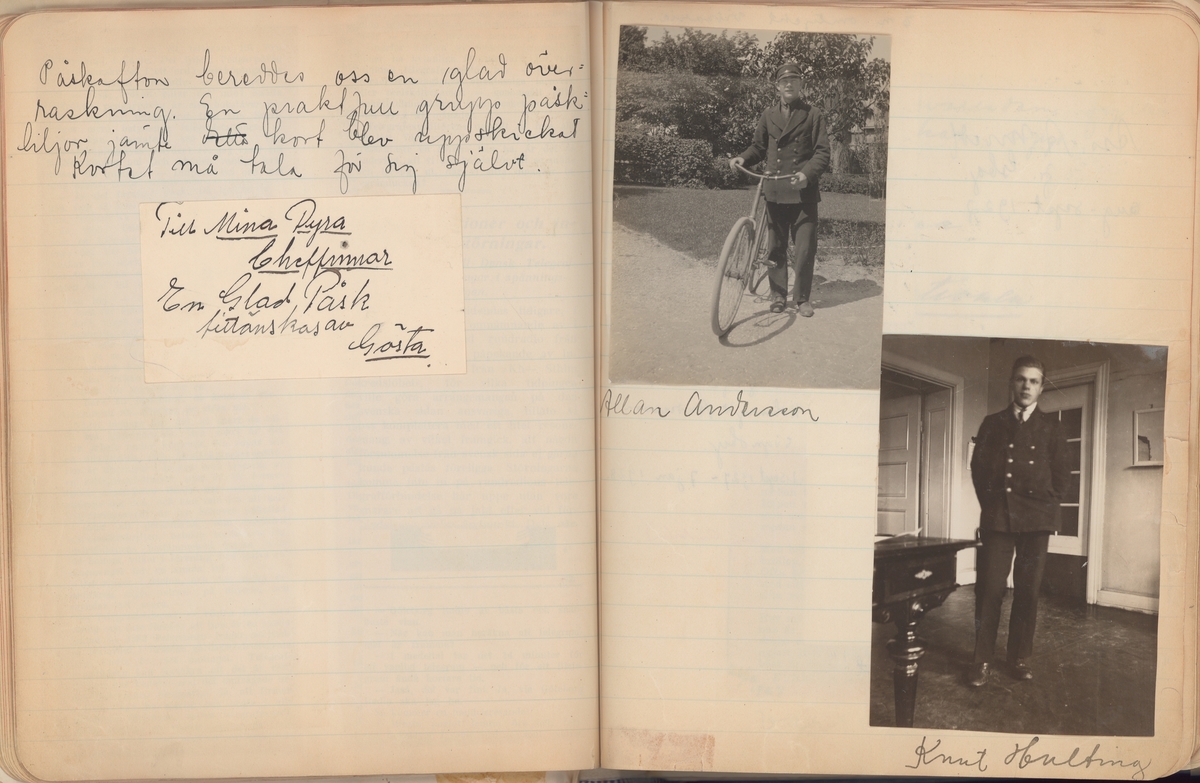 Påskafton bereddes oss en glad över-
raskning. En praktfull grupp påsk-
liljor jämte kort blev uppskickat
Kortet må tala för sig självt.
Till Mina Dyra
Cheffinnor
En Glad Påsk
tillönskas av
Gösta.
Allan Andersson
Knut Hulting